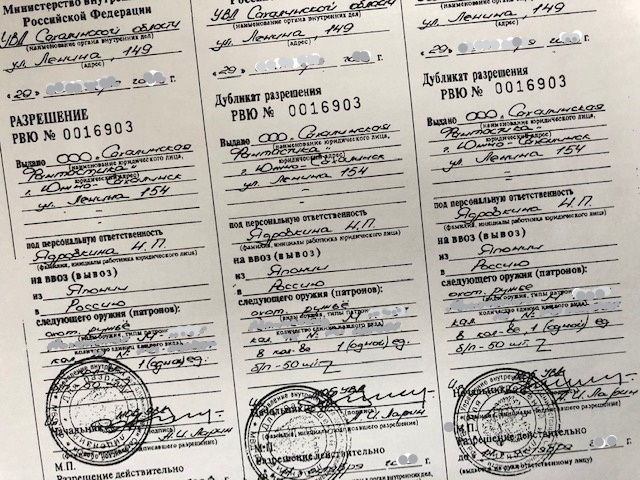 Министерство внутрен
Российской Федерации
УВД Сахалинской области
(наименование органа внутренних дел)
ул. Ленина, 149
(адрес)
«29 г.
РАЗРЕШЕНИЕ
РВЮ № 0016903
Выдано ООО „Сахалинская
(наименование юридического лица,
Фантастика"
г. Южно-Сахалинск
юридический адрес)
ул. Ленина 154
под персональную ответственность
Ядровкина Н.П.
(фамилия, инициалы работника юридического лица)
на ввоз (вывоз)
из Японии
в Россию
следующего оружия (патронов):
охот. ружьё
количество единиц каждого вида)
кал. №
в кол-ве 1(одно) ед.
Начальник
А.И. Ларин
(фамилия, инициалы подписавшего разрешение)
М.П.
Разрешение действительно
УВД Сахалинской области
(наименование органа внутренних дел)
ул. Ленина, 149
(адрес)
«29 г.
Дубликат разрешения
РВЮ № 0016903
Выдано ООО „Сахалинская
(наименование юридического лица,
Фантастика"
г. Южно-Сахалинск
юридический адрес)
ул. Ленина 154
под персональную ответственность
Ядровкина Н.П.
(фамилия, инициалы работника юридического лица)
на ввоз (вывоз)
из Японии
в Россию
следующего оружия (патронов):
охот. ружьё
(виды оружия, типы патронов,
количество единиц каждого вида)
кал. №
в кол-ве 1(одно) ед.
б/п - 50 шт
Начальник
(подпись)
А.И. Ларин
(фамилия, инициалы подписавшего разрешение)
М.П.
Разрешение действительно
г.
Российской Федерации
УВД Сахалинской области
(наименование органа внутренних дел)
ул. Ленина, 149
(адрес)
«29 г.
Дубликат разрешения
РВЮ № 0016903
Выдано ООО „Сахалинская
(наименование юридического лица,
Фантастика"
г. Южно-Сахалинск
юридический адрес)
ул. Ленина 154
под персональную ответственность
Ядровкина Н.П.
(фамилия, инициалы работника юридического лица)
на ввоз (вывоз)
из Японии
в Россию
следующего оружия (патронов):
охот. ружьё
(виды оружия, типы патронов,
количество единиц каждого вида)
кал. №
в кол-ве 1(одно) ед.
б/п - 50 шт
Начальник
А.И. Ларин
(фамилия, инициалы подписавшего разрешение)
М.П.
Разрешение действительно
г.